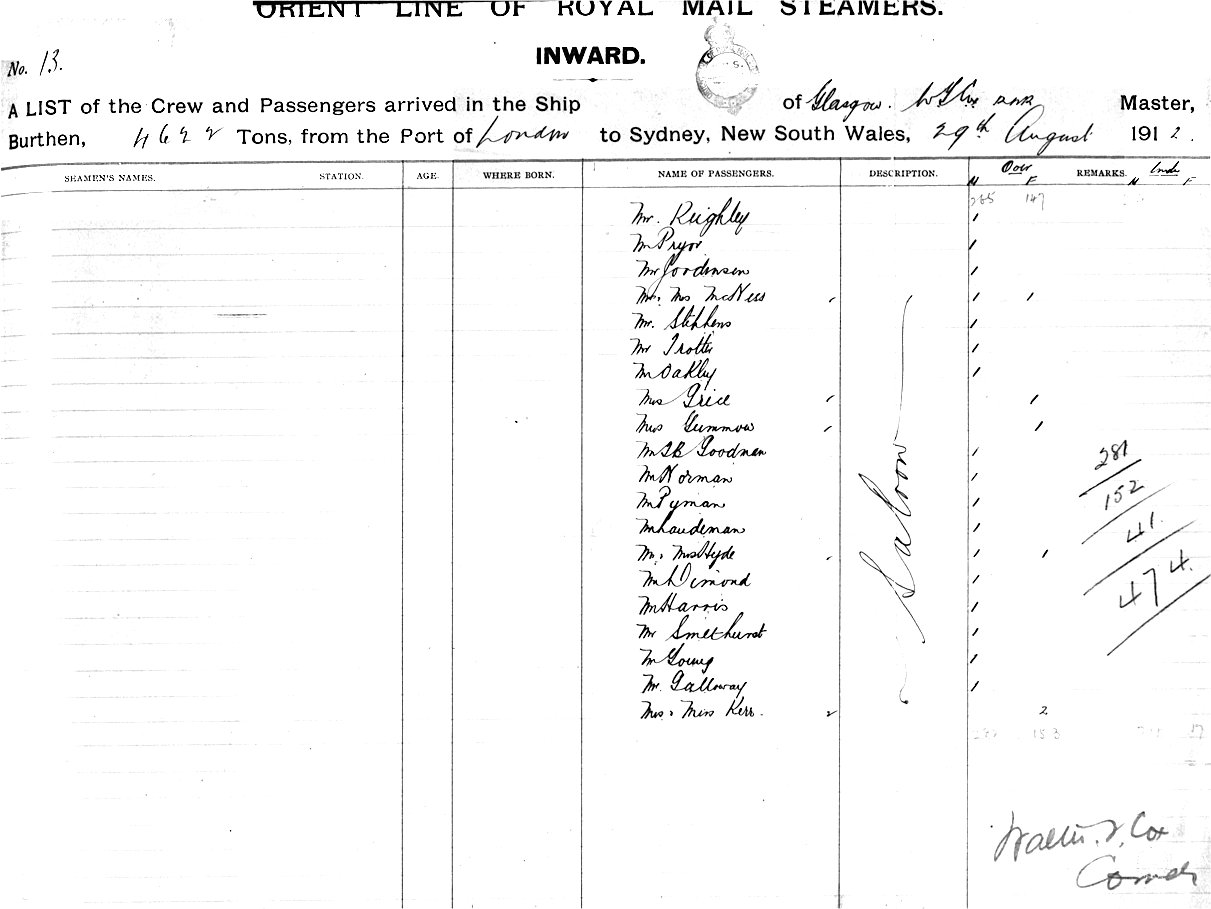 ORIENT LINE OF ROYAL MAIL STEAMERS.
INWARD.
No. 13.
A LIST of the Crew and Passengers arrived in the Ship of Glasgow. W G Cox Master,
Burthen, 4622 Tons, from the Port of London to Sydney, New South Wales, 29th August 1912.
SEAMEN'S NAMES. STATION. AGE. WHERE BORN. NAME OF PASSENGERS. DESCRIPTION. Over REMARKS.
M F M F
285 147
Mr. Keighley
Mr Pryor
Mr
Mr. Mrs McNess
Mr. Stephens
Mr Trotter
Mr Oakley
Mrs Grice
Mrs Gummow
Mr Goodman
Mr Norman
Mr Pyman
Mr Laudeman
Mr. Mrs Hyde
Mr Dimond
Mr Harris
Mr Smethurst
Mr Young
Mr. Galloway
Mrs. Miss Kerr. 2 2
153 17
Saloon
281
152
41.
474.
Walter Cox